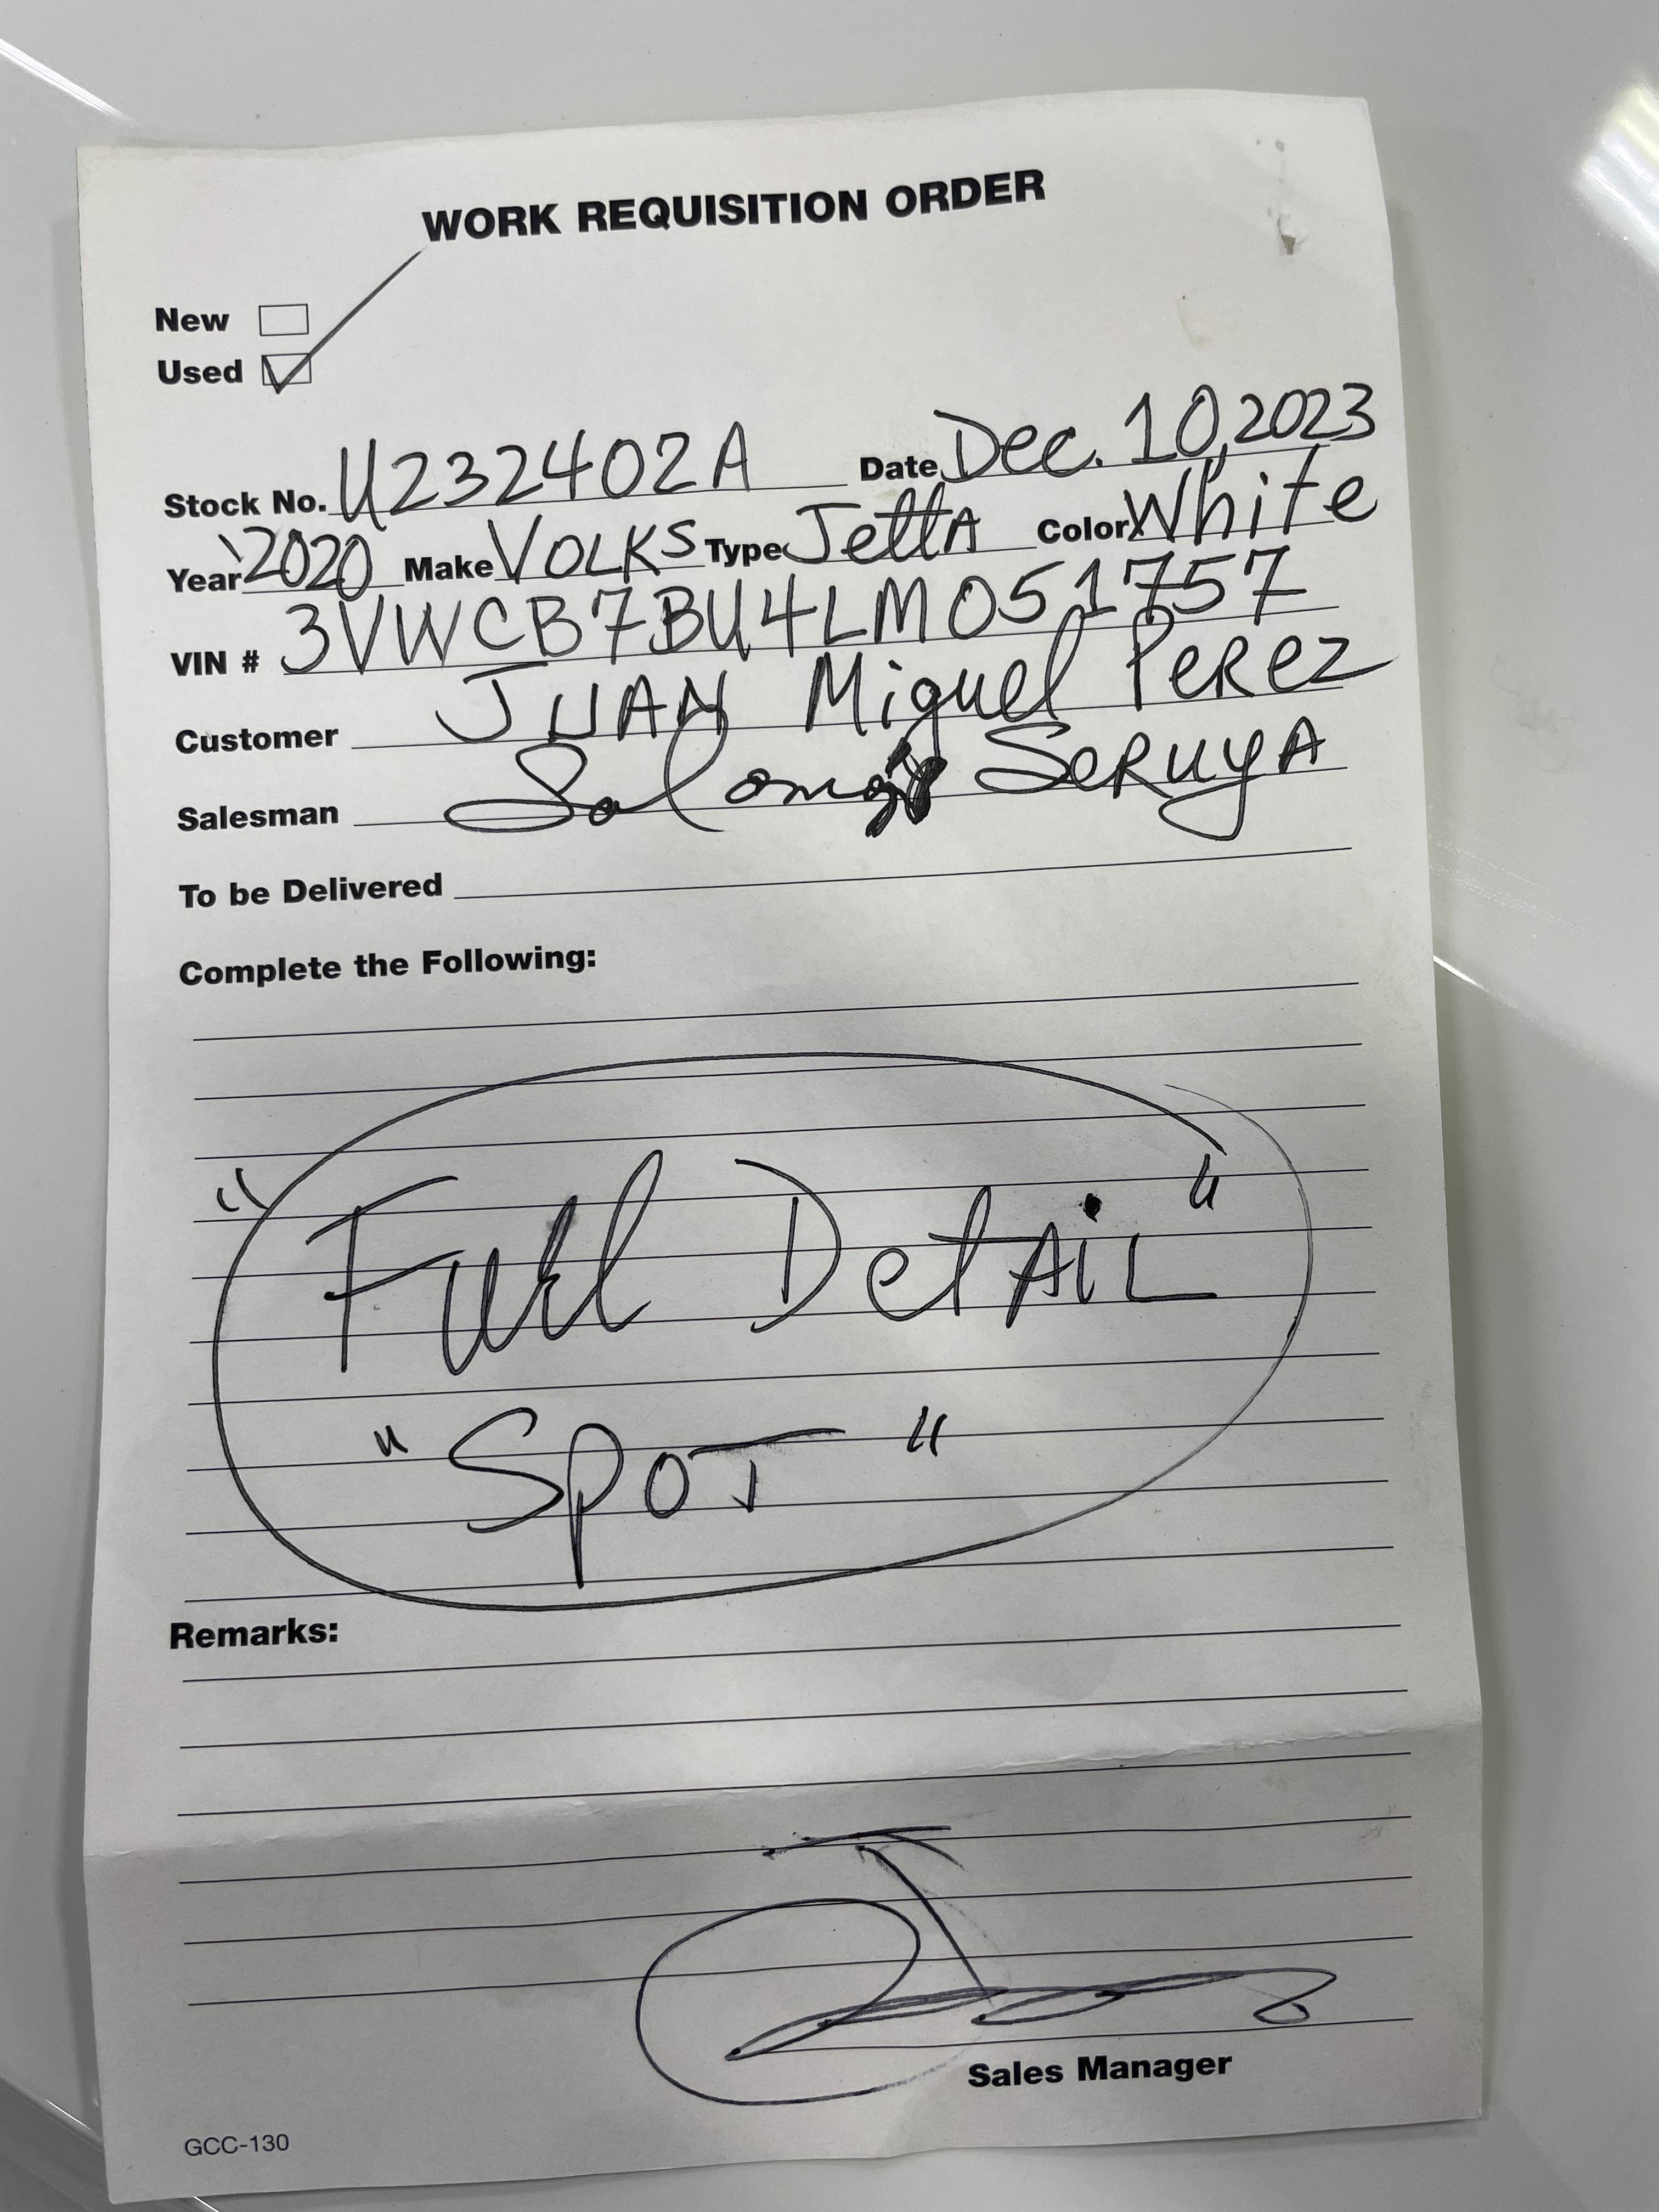 WORK REQUISITION ORDER
New
Used
Stock No. U232402A Date Dec. 10, 2023
Year 2020 Make VOLKS Type JettA Color White
VIN # 3VWCB7BU4LM051757
Customer JUAN Miguel PeRez
Salesman SeRuyA
To be Delivered
Complete the Following:
"Full DetAiL"
"SpoT"
Remarks:
Sales Manager
GCC-130